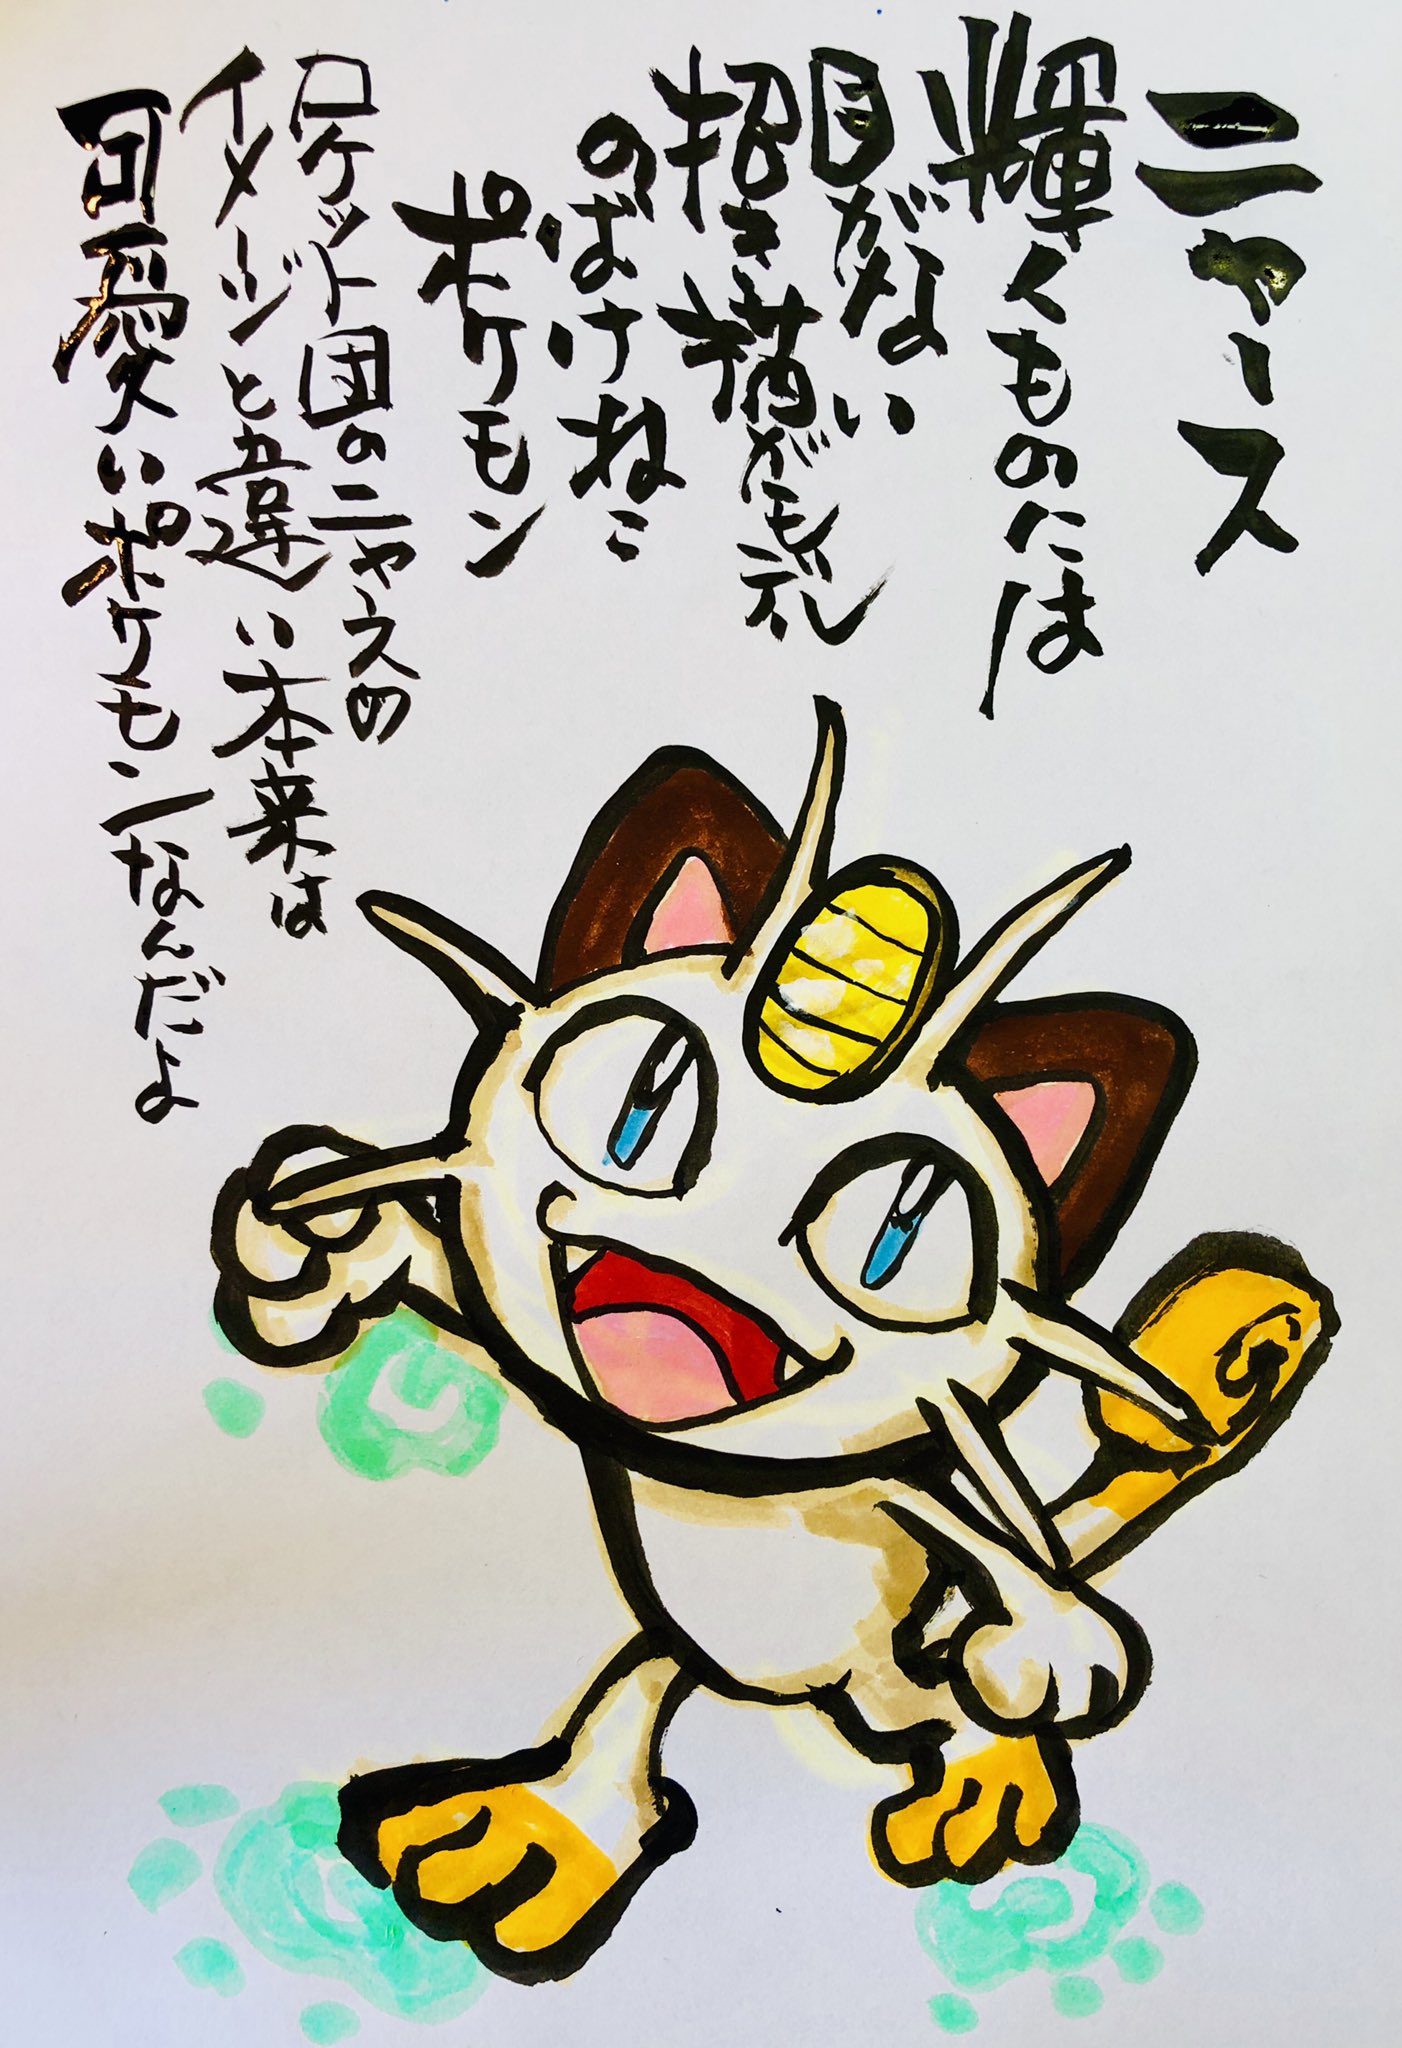 ニャース
輝くものには
目がない
招き猫がモデル
のばけねこ
ポケモン
ロケット団のニャースの
イメージと違い本来は
可愛いポケモンなんだよ